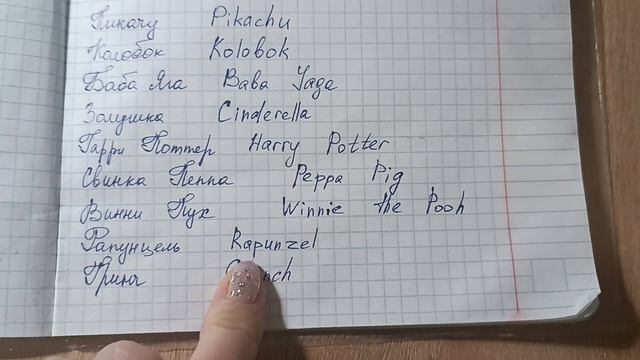 Пикачу Pikachu
Колобок Kolobok
Баба Яга Baba Yaga
Золушка Cinderella
Гарри Поттер Harry Potter
Свинка Пеппа Peppa Pig
Винни Пух Winnie the Pooh
Рапунцель Rapunzel
Гринч